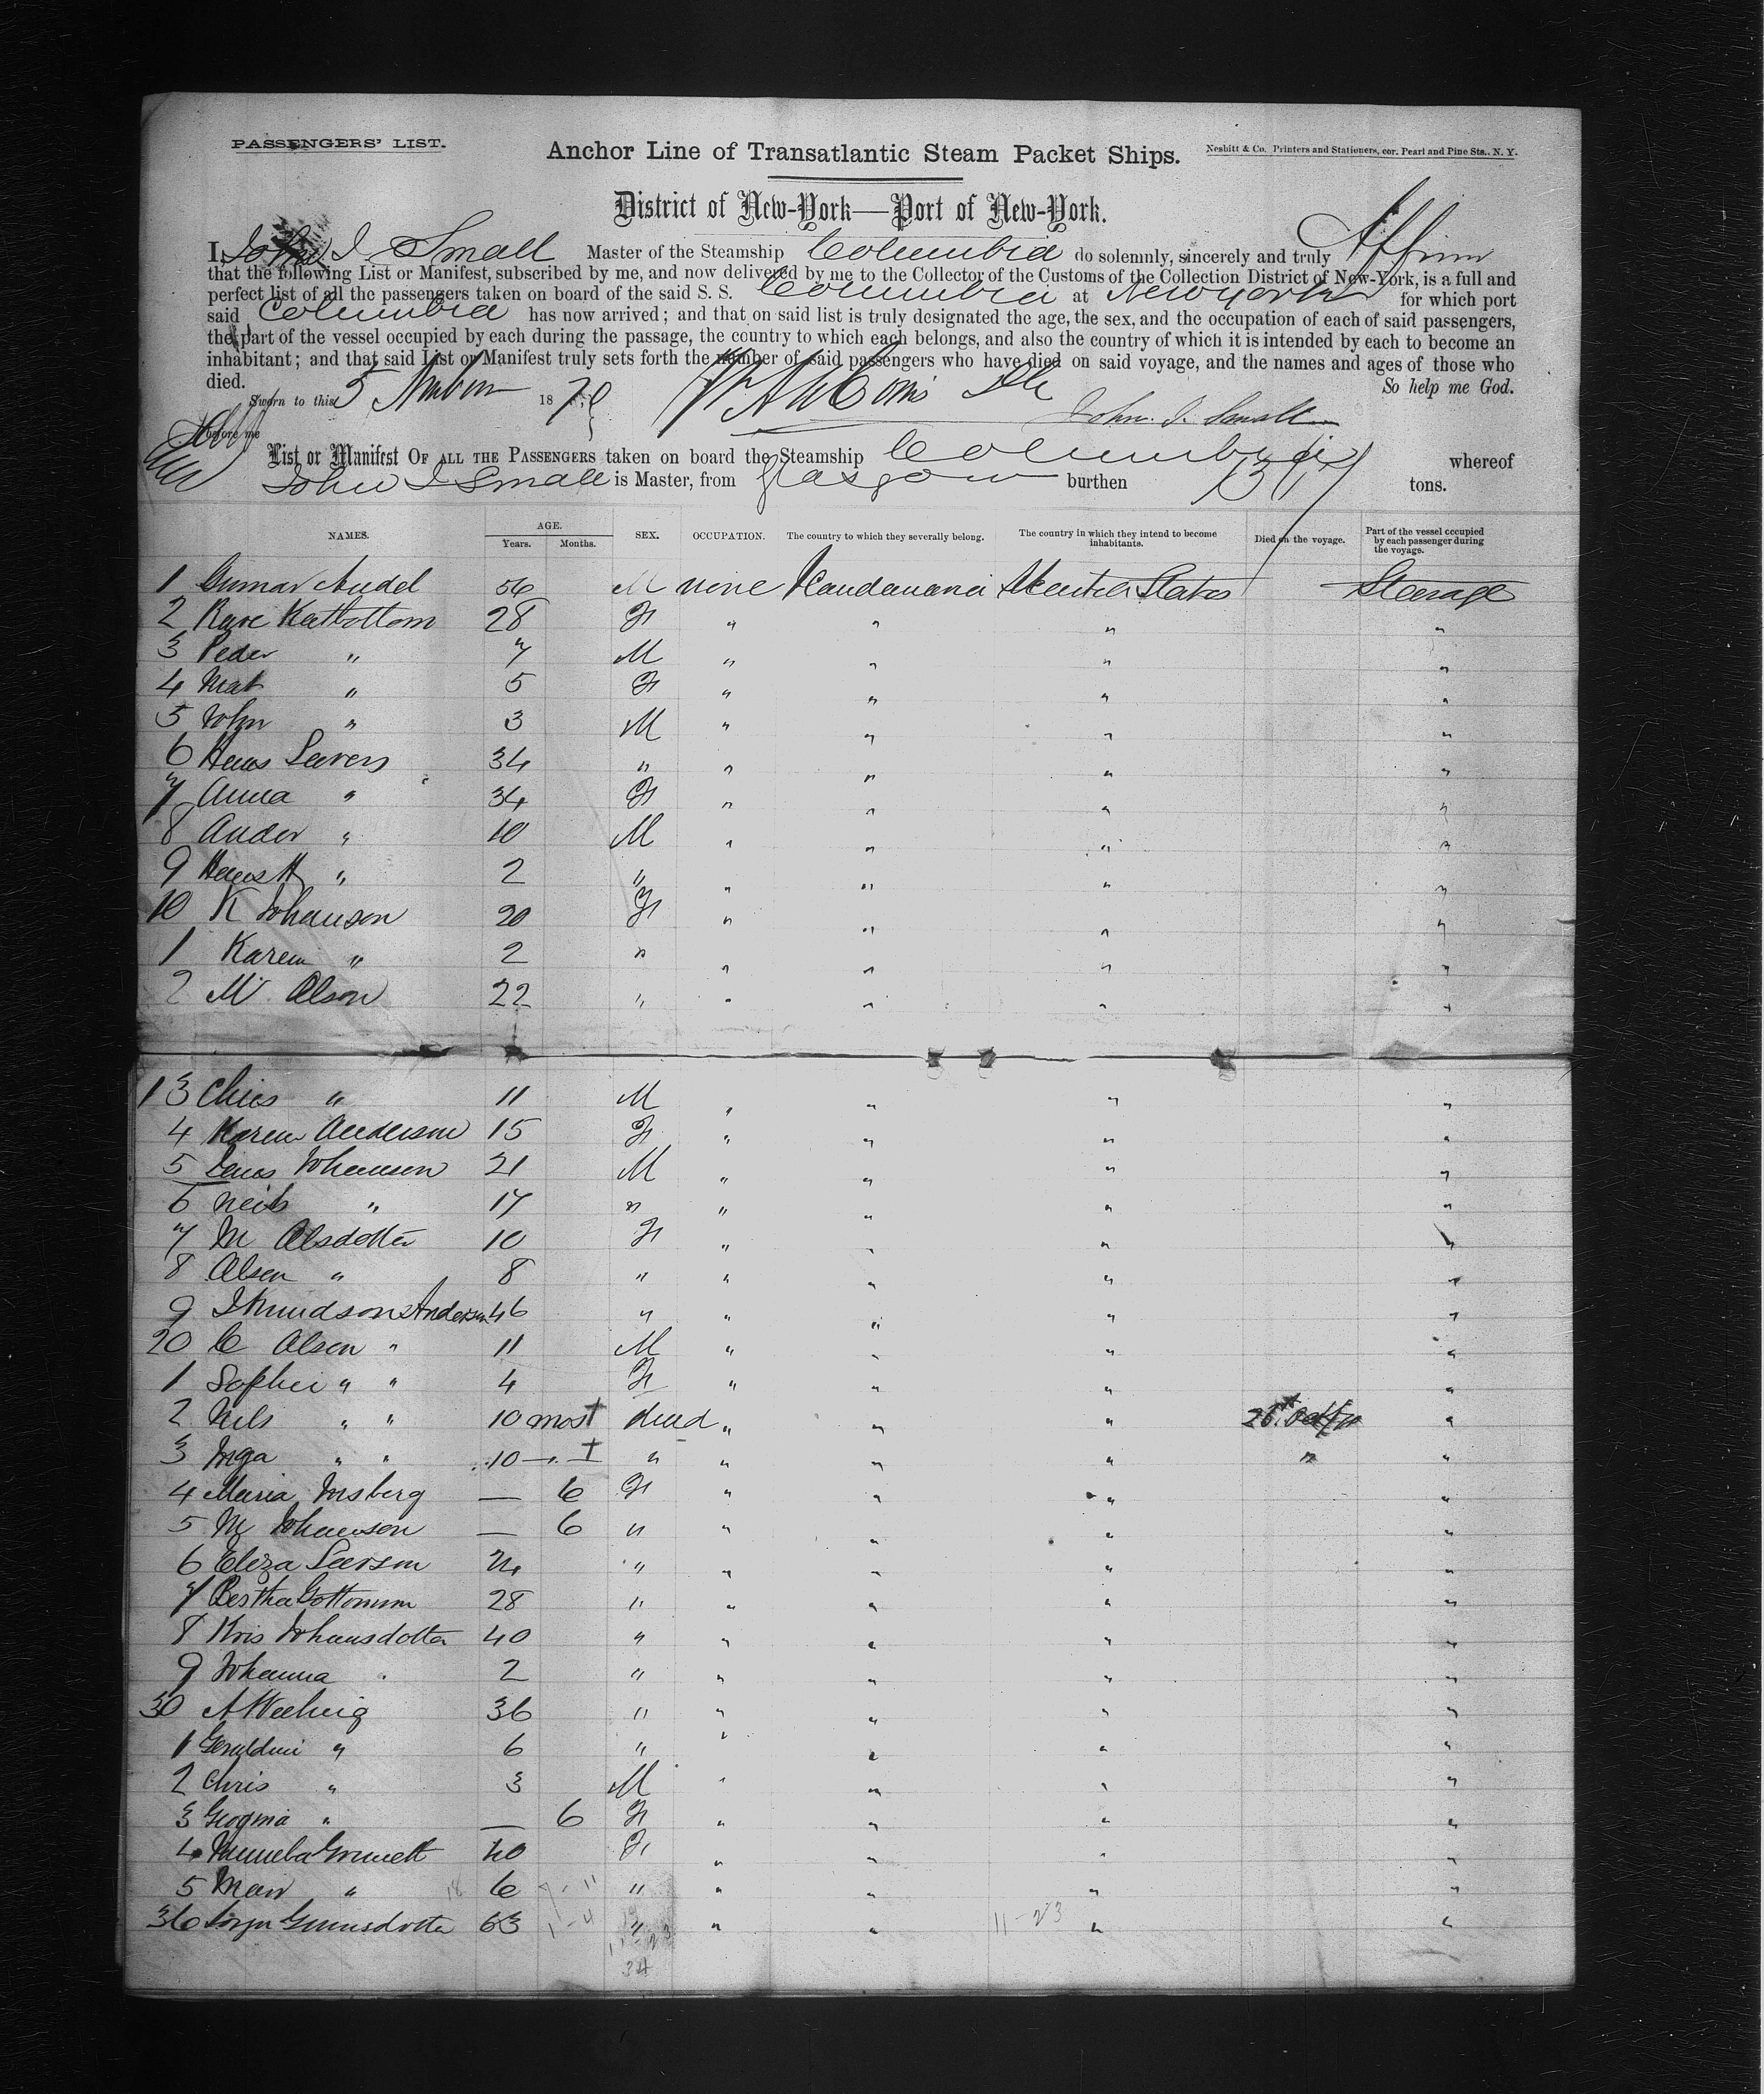 PASSENGERS' LIST.
Anchor Line of Transatlantic Steam Packet Ships.
Nesbitt & Co. Printers and Stationers, cor. Pearl and Pine Sts., N. Y.
District of New-York—Port of New-York.
I, John I Small Master of the Steamship Columbia do solemnly, sincerely and truly Affirm
that the following List or Manifest, subscribed by me, and now delivered by me to the Collector of the Customs of the Collection District of New-York, is a full and
perfect list of all the passengers taken on board of the said S. S. Columbia at New york for which port
said Columbia has now arrived; and that on said list is truly designated the age, the sex, and the occupation of each of said passengers,
the part of the vessel occupied by each during the passage, the country to which each belongs, and also the country of which it is intended by each to become an
inhabitant; and that said List or Manifest truly sets forth the number of said passengers who have died on said voyage, and the names and ages of those who
died. So help me God.
Sworn to this 5 1870
John. I. Small
before me
List or Manifest OF ALL THE PASSENGERS taken on board the Steamship Columbia whereof
John I Small is Master, from Glasgow burthen tons.
NAMES. AGE. Years. Months. SEX. OCCUPATION. The country to which they severally belong. The country in which they intend to become inhabitants. Died on the voyage. Part of the vessel occupied by each passenger during the voyage.
1 Gunnar 56 M none States Steerage
2 28 F " " " "
3 Peder " 7 M " " " "
4 Mat " 5 F " " " "
5 John " 3 M " " " "
6 Hans Severs 34 " " " " "
7 Anna " 34 F " " " "
8 Ander " 10 M " " " "
9 Hans H " 2 " " " " "
10 K Johanson 20 F " " " "
1 Karen " 2 " " " " "
2 M Olson 22 " " " " "
13 Chris " 11 M " " " "
4 Karen Anderson 15 F " " " "
5 Johanson 21 M " " " "
6 Neils " 17 " " " " "
7 M Olsdotter 10 F " " " "
8 Olsen " 8 " " " " "
9 I Knudson Anderson 46 " " " " "
20 C Olson " 11 M " " " "
1 Sophei " " 4 F " " " "
2 Nils " " 10 mos † dead " " " "
3 Inga " " 10 — " † " " " " " "
4 Maria — 6 F " " " "
5 M Johanson — 6 " " " " "
6 Eliza " " " " "
7 Bertha 28 " " " " "
8 Kris Johansdotter 40 " " " " "
9 Johanna " 2 " " " " "
30 36 " " " " "
1 " 6 " " " " "
2 Chris " 3 M " " " "
3 " — 6 F " " " "
4 40 F " " " "
5 " 6 " " " " "
36 63 " " " " "
11-23
34